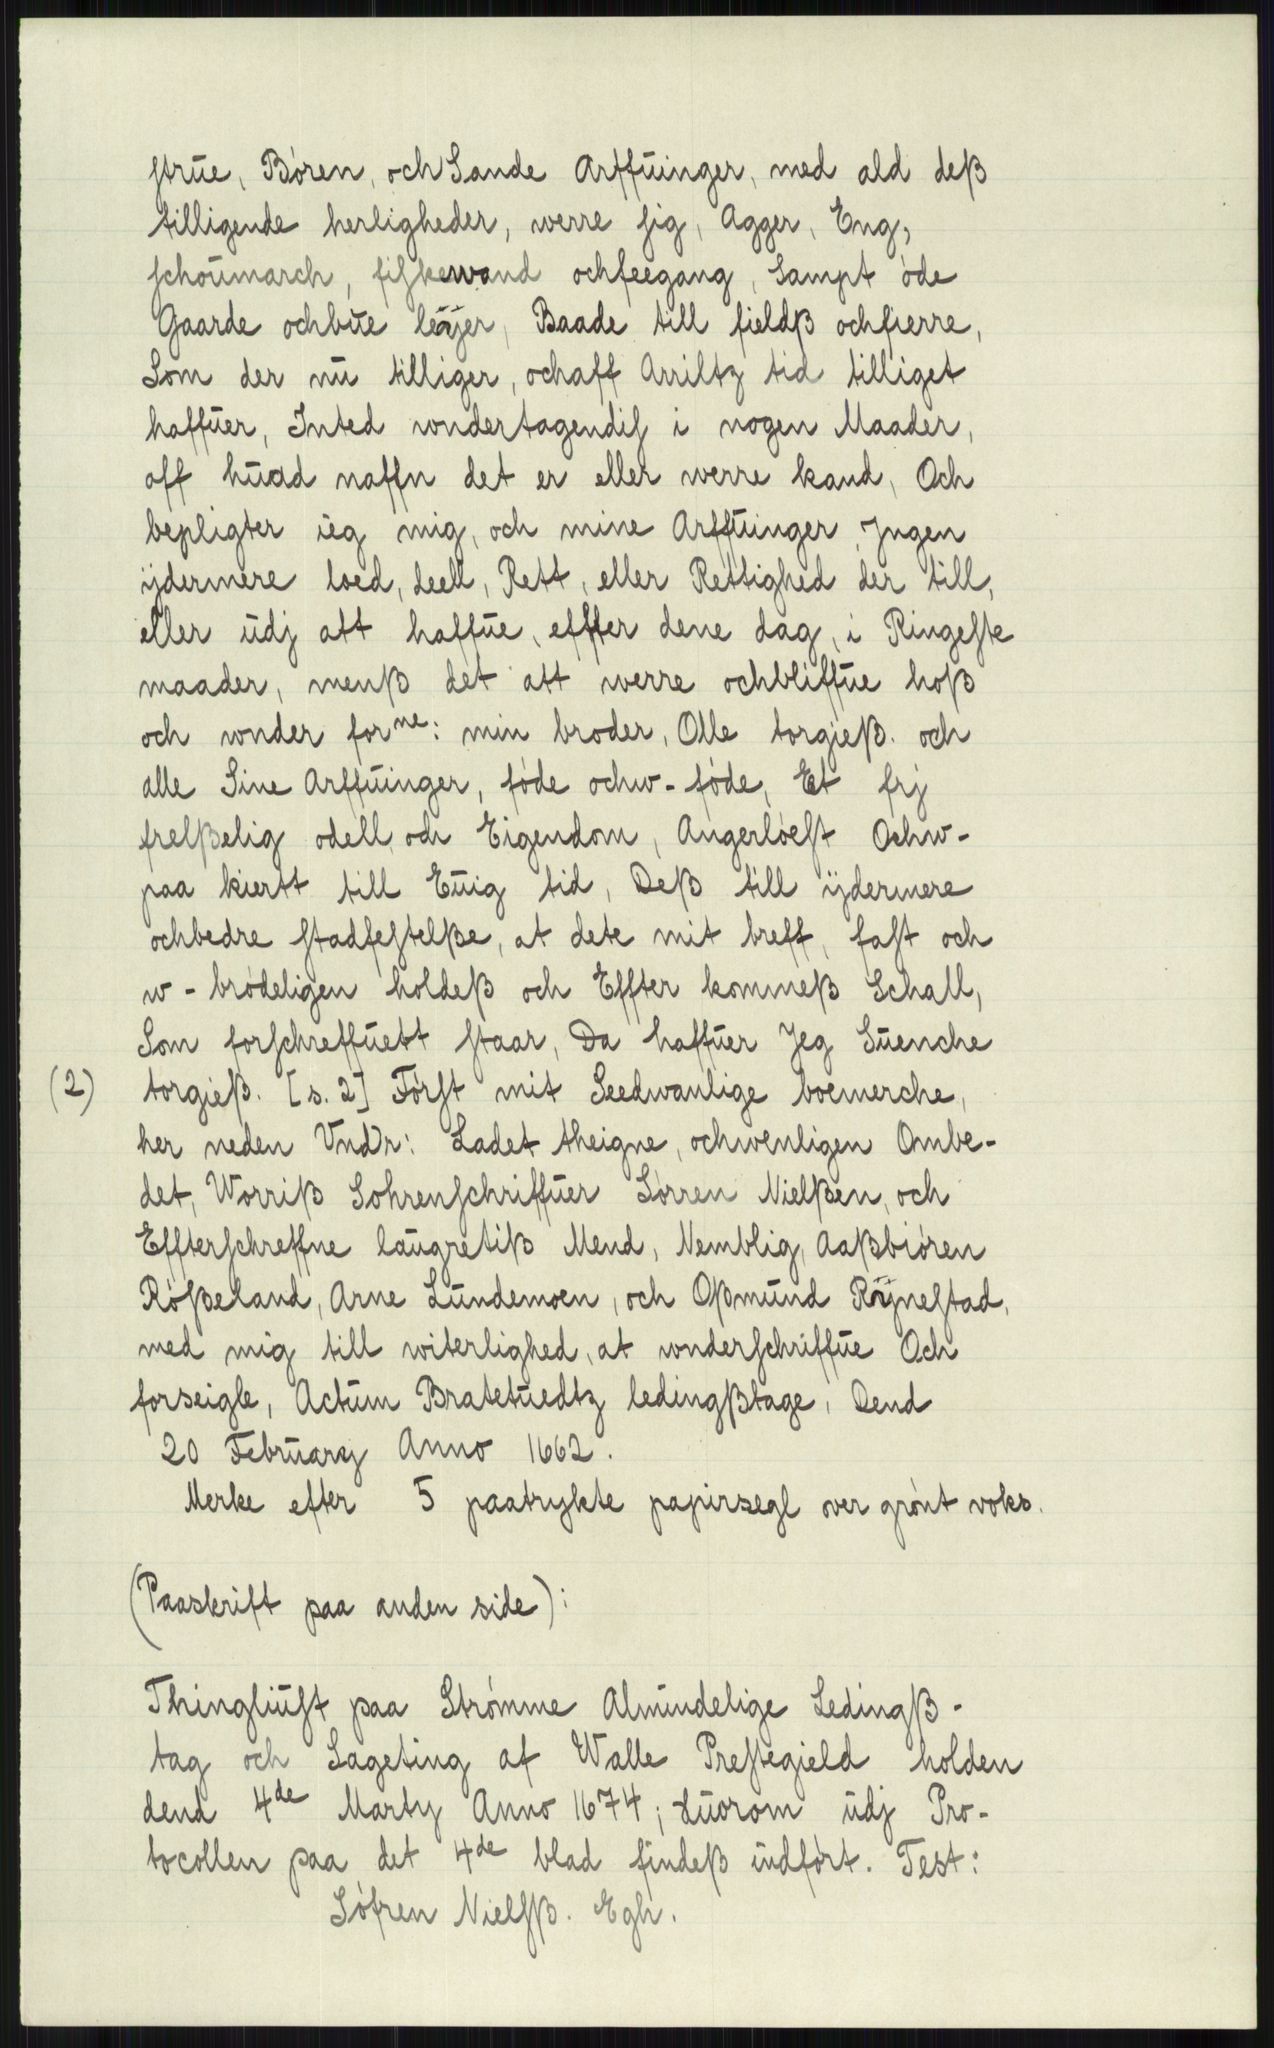 ſtrŭe, Bören, och Sande Arffŭinger, med ald deß
tilligende herligheder, werre ſig, Agger, Eng,
ſchoŭmarch, fiſkewand ochfeegang, Sampt öde
Gaarde ochbŭe leÿer, Baade till fieldß ochfierre,
Som der nŭ tilliger, ochaff Arriltz tid tilliget
haffŭer, Inted wndertagendiſ i nogen Maader,
aff hŭad naffn det er eller werre kand, Och
bepligter ieg mig, och mine Arffŭinger Jngen
ÿdermere loed, deell, Rett, eller Rettighed der till,
eller ŭdj att haffŭe, effter dene dag, i Ringeſte
maader, menß det att werre ochbliffŭe hoß
och wnder forⁿᵉ: min broder, Olle torgieß. och
alle Sine Arffŭinger, föde ochw-föde, Et frj
frelßelig odell och Eigendom, Angerlöeſt Ochw-
paa kiertt till Eŭig tid, Deß till ÿdermere
ochbedre ſtadfeſtelße, at dete mit breff, faſt och
w-brödeligen holdeß och Effter kommeß Schall,
Som forſchreffŭett ſtaar, Da haffŭer Jeg Sŭenche
(2) torgieß. [s. 2] Förſt mit Seedwanlige boemerche,
her neden Vndr: Ladet theigne, ochwenligen Ombe-
det, Worriß Sohrenſchriffŭer Sörren Nielßen, och
Effterſchreffne laŭgretiß Mend, Nemblig, Aaßbiören
Rößeland, Arne Lŭndemoen, och Oßmŭnd Rÿneſtad,
med mig till witerlighed, at wnderſchriffŭe Och
forseigle, Actŭm Bratetŭedtz ledingßtage, Dend
20 Febrŭarÿ Anno 1662.
Merke efter 5 paatrykte papirsegl over grönt voks.
(Paaskrift paa anden side):
Thingliŭſt paa Strömme Almŭndelige Ledingß-
tag och Sageting af Walle Preſtegield holden
dend 4ᵈᵉ Marty Anno 1674; dŭorom ŭdj Pro-
tocollen paa det 4ᵈᵉ blad findeß indfört. Test:
Söfren Nielſß. Egh.